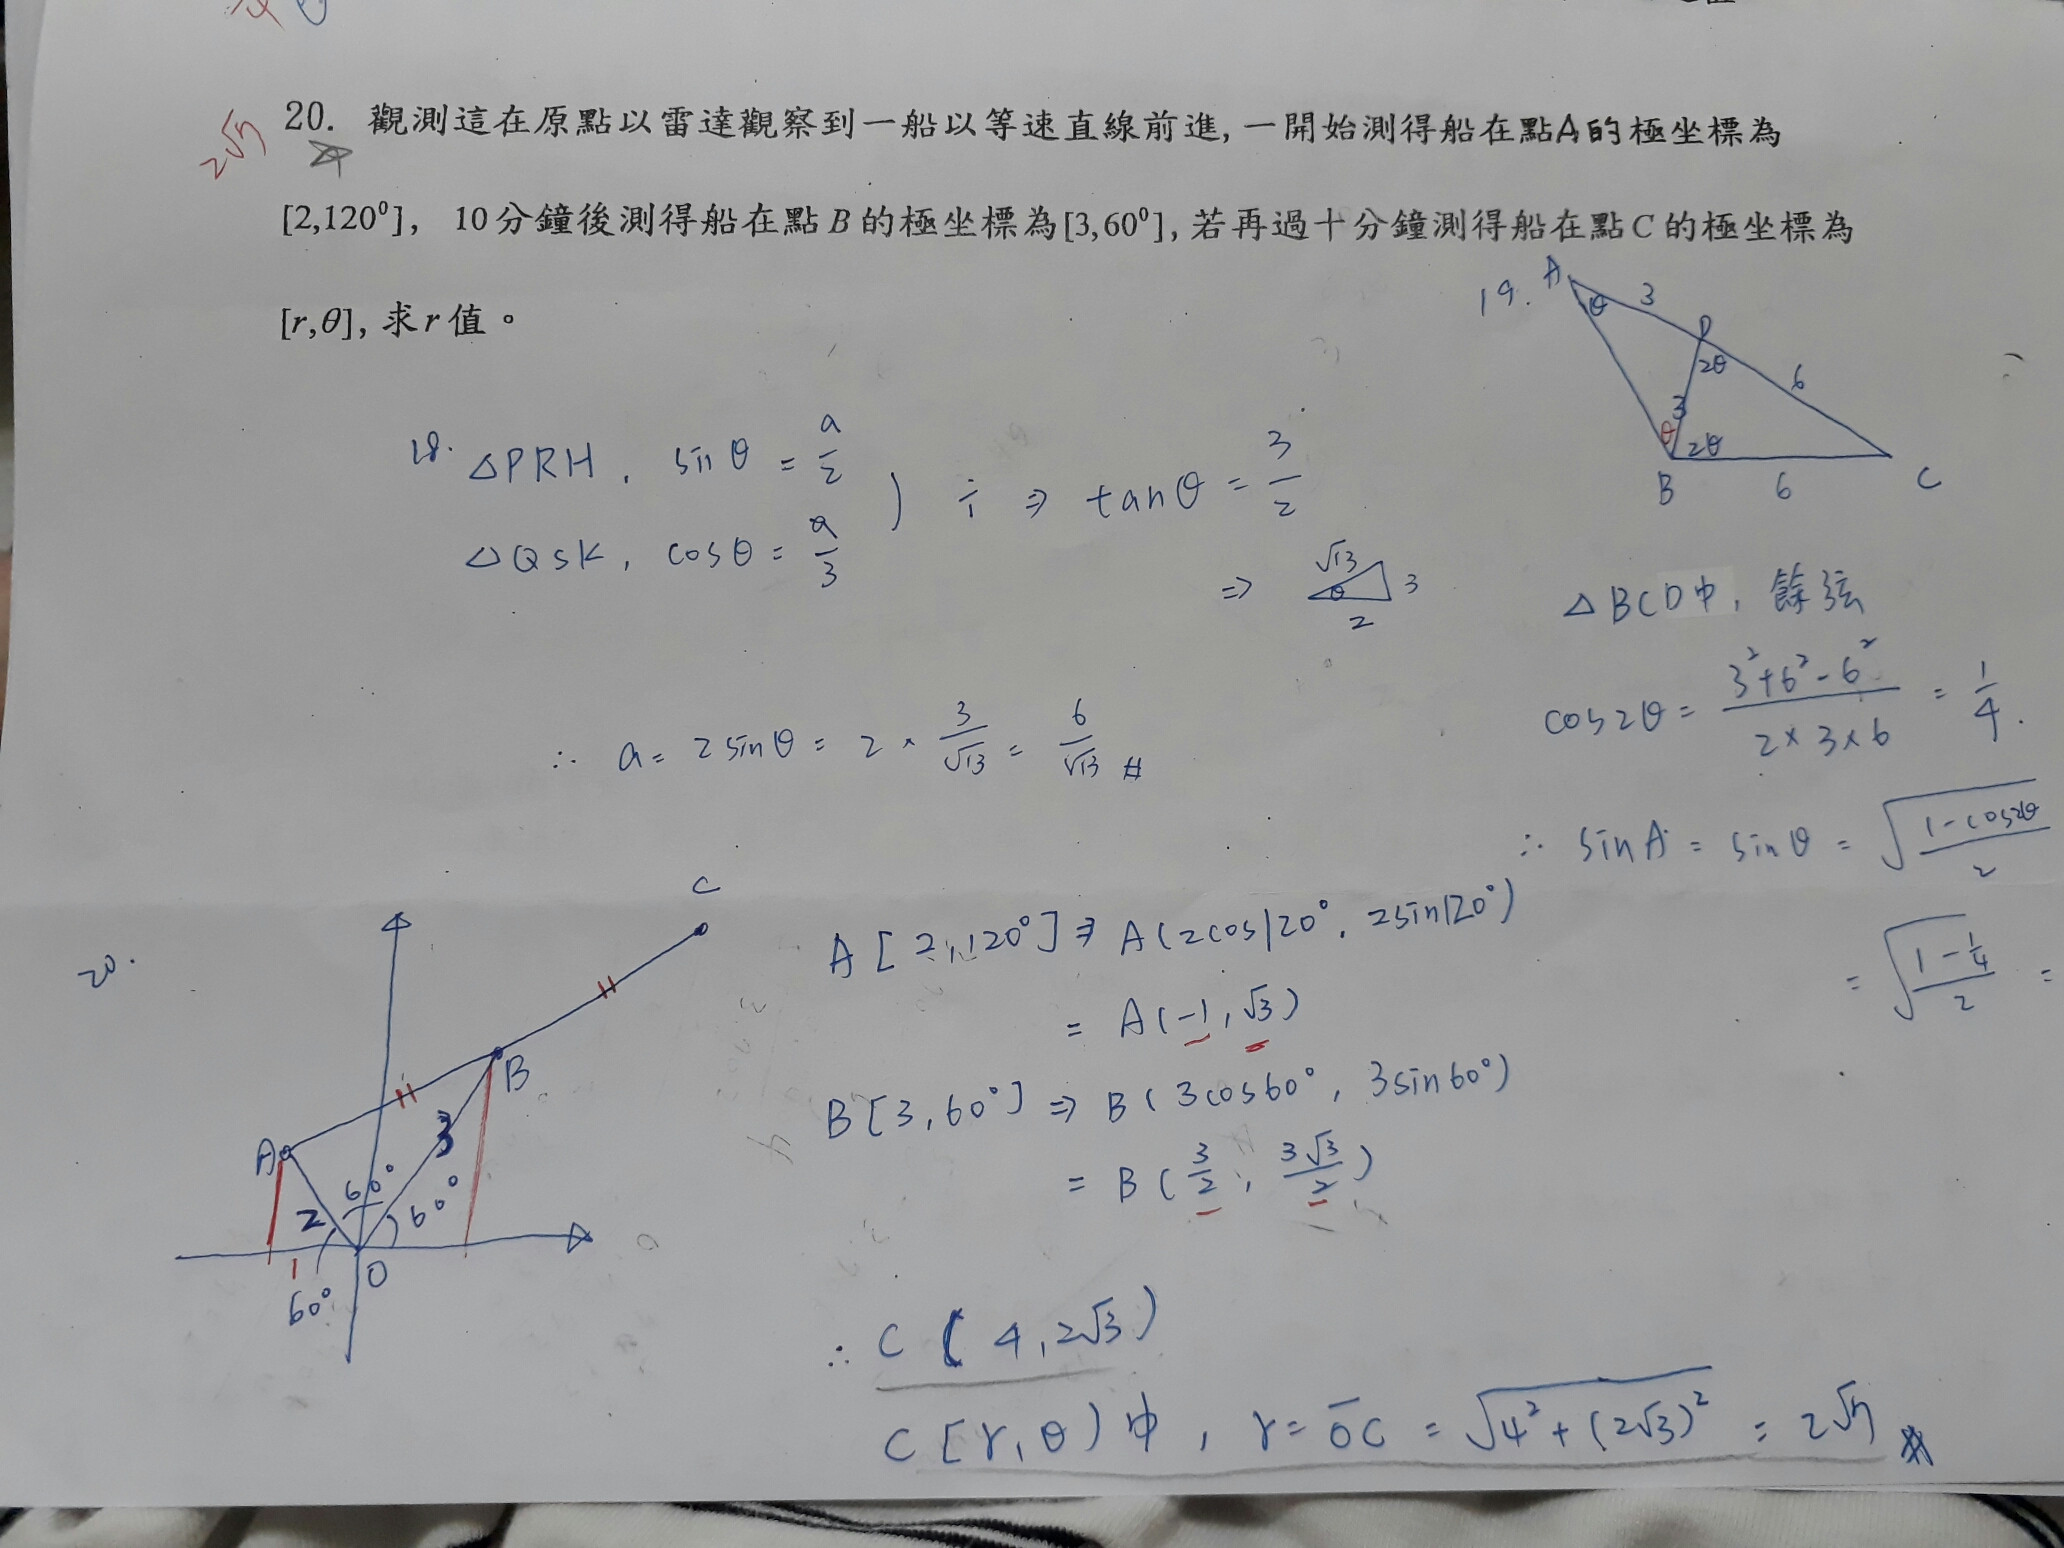 2√7
20. 觀測這在原點以雷達觀察到一船以等速直線前進, 一開始測得船在點A的極坐標為
[2,120⁰], 10分鐘後測得船在點B的極坐標為[3,60⁰], 若再過十分鐘測得船在點C的極坐標為
[r,θ], 求r值。
19. A θ 3 D 2θ 6 3 θ 2θ B 6 C
18. △PRH, sinθ = a/2
△QSK, cosθ = a/3
) ÷ ⇒ tanθ = 3/2
⇒ √13 θ 3 2
∴ a = 2sinθ = 2 × 3/√13 = 6/√13 #
△BCD中, 餘弦
cos2θ = (3²+6²-6²)/(2×3×6) = 1/4.
∴ sinA = sinθ = √((1-cos2θ)/2)
= √((1-1/4)/2) =
20.
C
B
A
3
2 60° 60°
1 O
60°
A[2,120°] ⇒ A(2cos120°, 2sin120°)
= A(-1, √3)
B[3,60°] ⇒ B(3cos60°, 3sin60°)
= B(3/2, 3√3/2)
∴ C(4, 2√3)
C[r,θ)中, r = OC = √(4²+(2√3)²) = 2√7 #